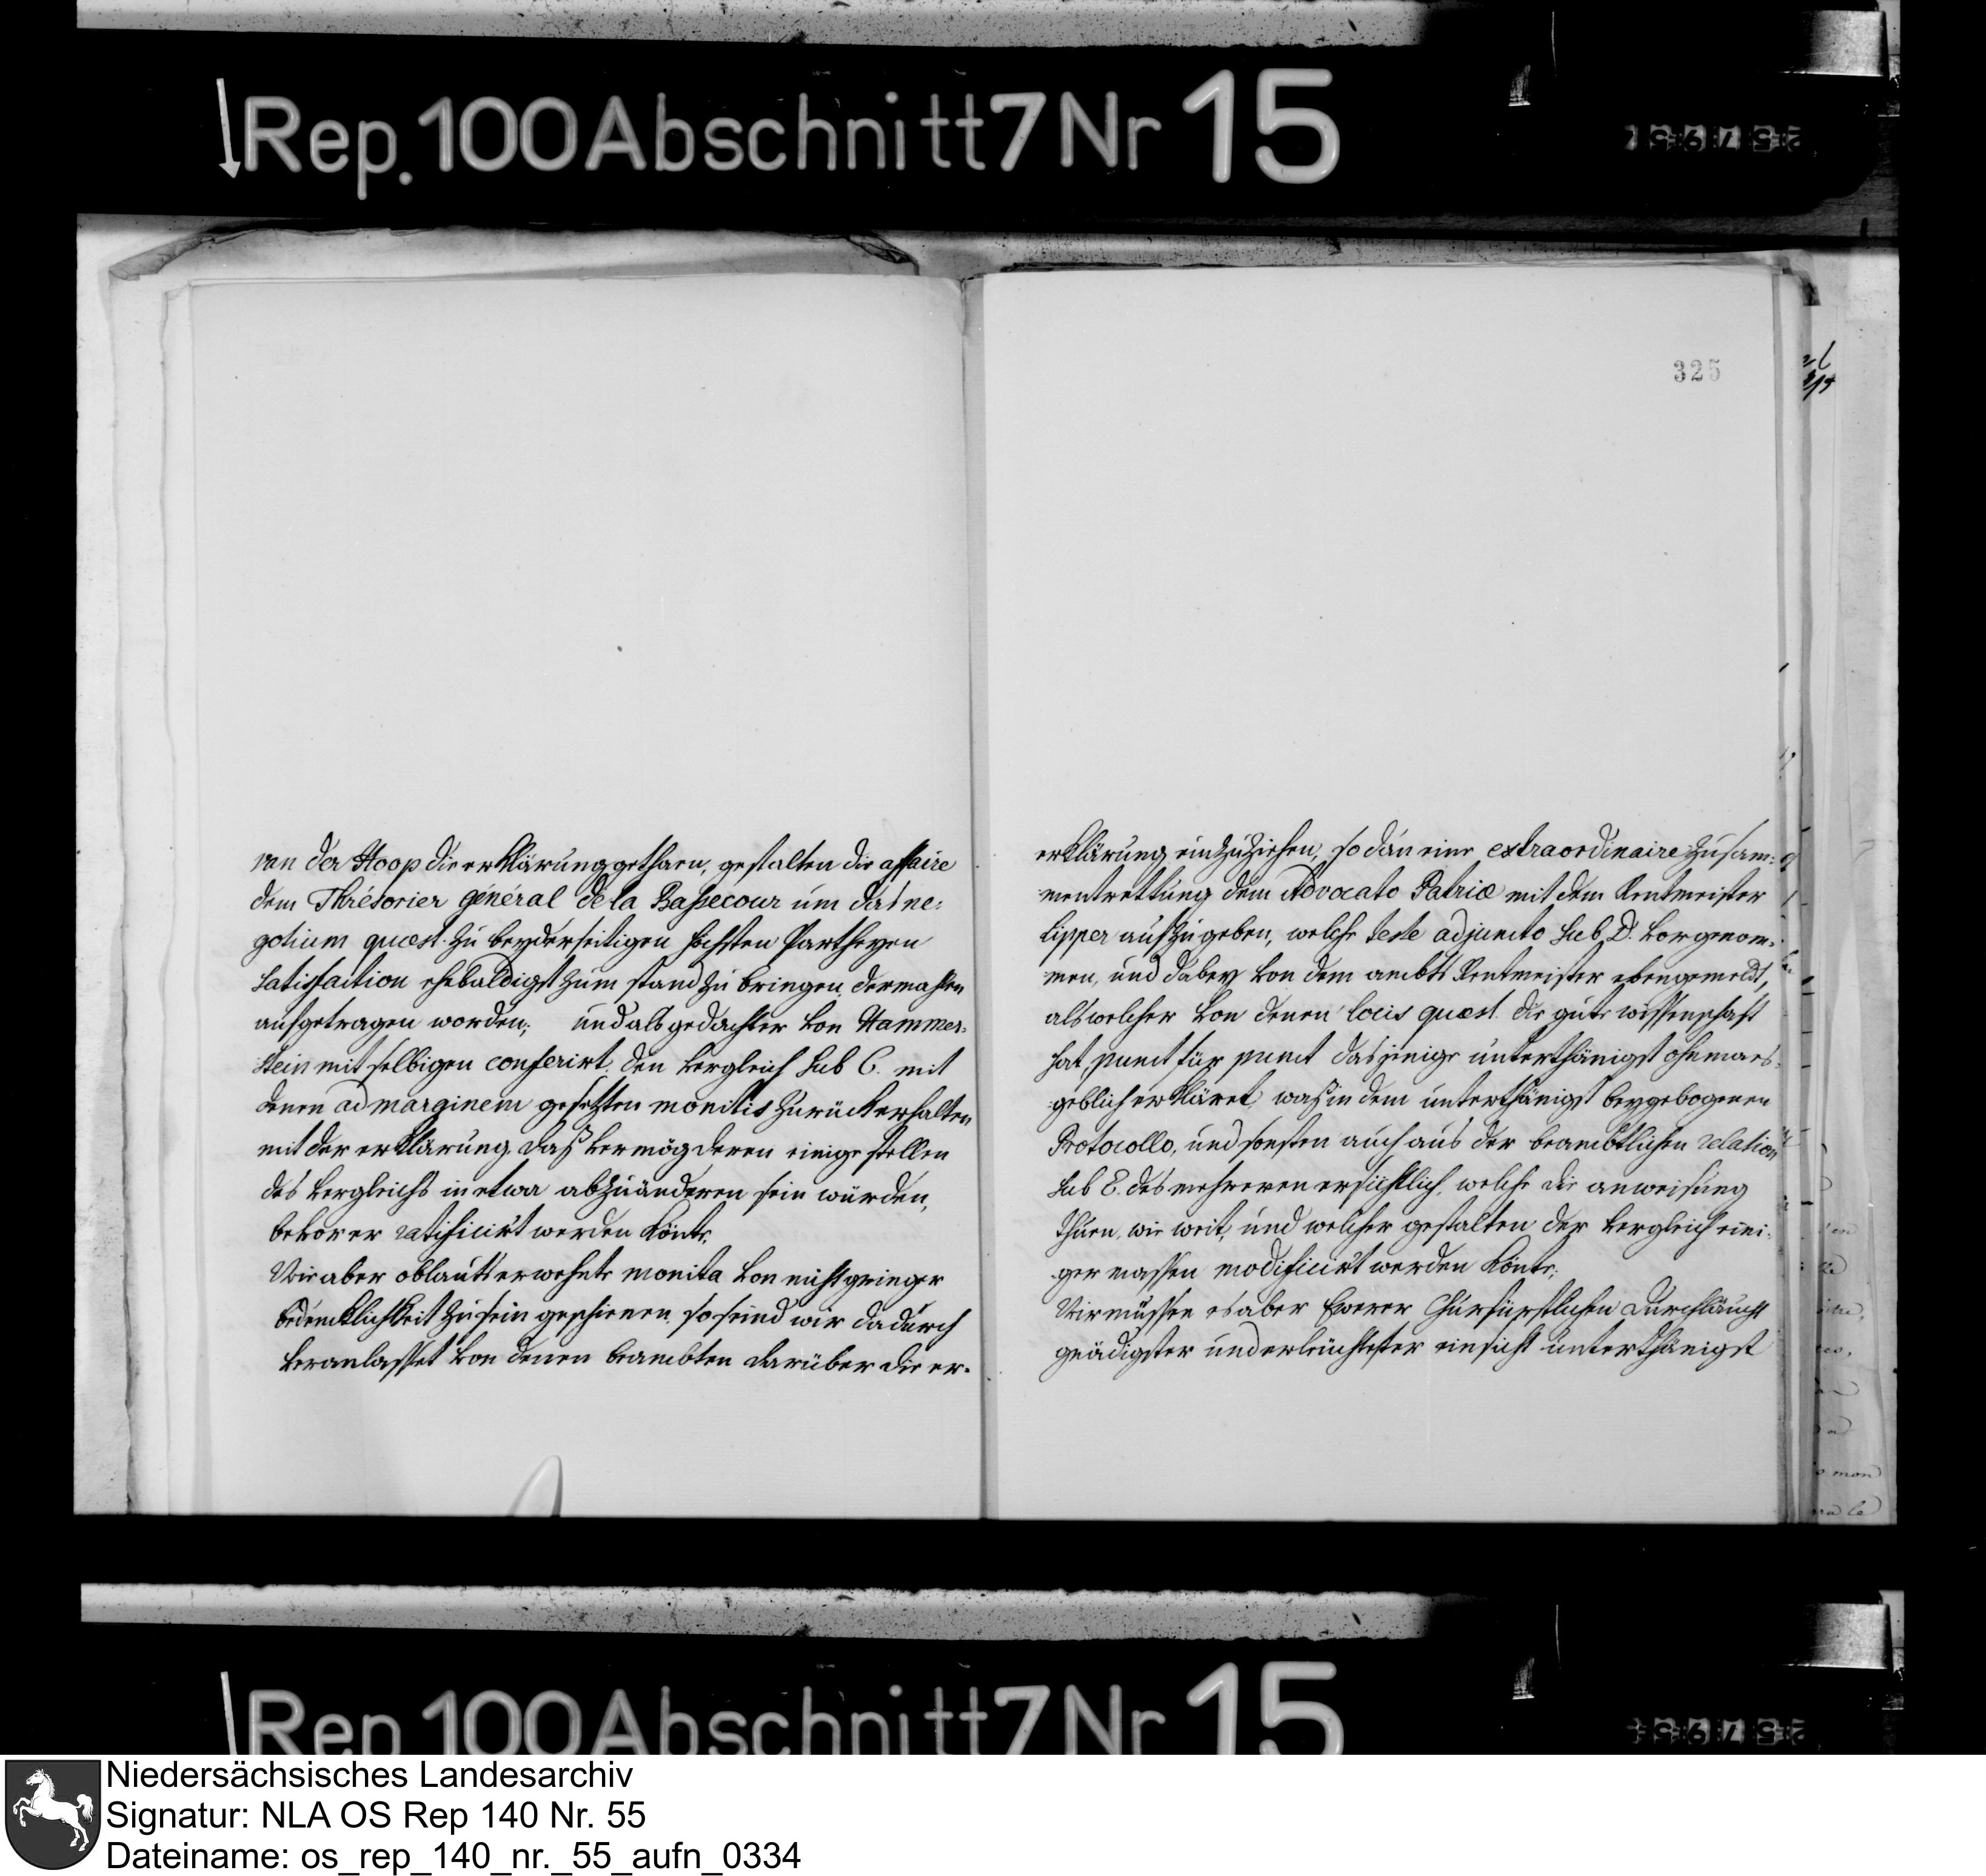 Rep. 100 Abschnitt 7 Nr 15
325
van der Hoop die erklärung gethaen, gestalten die affaire
dem Thrésorier général de la Bassecour um das ne:
gotium quæst. zu beyderseitigen höchsten Partheyen
satisfaction ehebaldigst zum stand zu bringen, dermahlen
aufgetragen worden; und als gedachter von Hammer:
stein mit selbigen conferirt, den vergleich sub C. mit
denen ad marginem gesetzten monitis zurück erhalten
mit der erklärung, daß vermög deren einige stellen
des vergleichs in etwa abzuänderen sein würden,
bevor er ratificirt werden könte.
Wie aber oblauts erwehnte monita von nicht gringer
bedencklichkeit zu sein geschienen, so seind wir dadurch
veranlasset von denen beambten darüber die er:
erklärung einzuziehen, so dan eine extraordinaire zusam:
mentrettung dem Advocato Patriæ mit dem Rentmeister
Lipper aufzugeben, welche teste adjuncto sub D. vorgenom:
men, und dabey von dem ambts Rentmeister ebengemelt,
als welcher von denen locis quæst. die gute wissenschaft
hat, punct für punct dasjenige unterthänigst ohnmaes:
geblich erkläret, was in dem unterthänigst beygebogenen
Protocollo, und sonsten auch aus der beambtlichen relation
sub E. des mehreren ersichtlich, welche die anweisung
thuen, wie weit, und welcher gestalten der vergleich eini:
ger massen modificirt werden könte;
Wir müssen es aber Ewerer Churfürstlichen Durchlaucht
gnädigster und erleuchtester einsicht unterthänigst
Rep. 100 Abschnitt 7 Nr 15
Niedersächsisches Landesarchiv
Signatur: NLA OS Rep 140 Nr. 55
Dateiname: os_rep_140_nr._55_aufn_0334